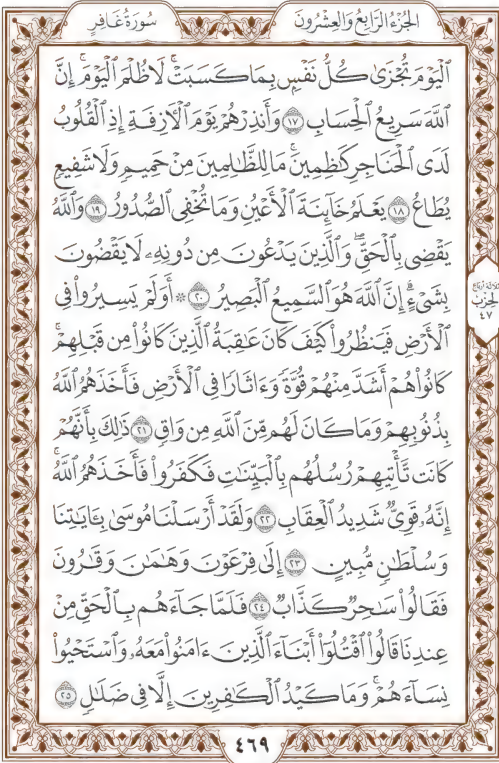 الجُزْءُ الرَّابِعُ وَالعِشْرُونَ
سُورَةُ غَافِرٍ
ٱلْيَوْمَ تُجْزَىٰ كُلُّ نَفْسٍۭ بِمَا كَسَبَتْ ۚ لَا ظُلْمَ ٱلْيَوْمَ ۚ إِنَّ
ٱللَّهَ سَرِيعُ ٱلْحِسَابِ ١٧ وَأَنذِرْهُمْ يَوْمَ ٱلْأَزِفَةِ إِذِ ٱلْقُلُوبُ
لَدَى ٱلْحَنَاجِرِ كَٰظِمِينَ ۚ مَا لِلظَّٰلِمِينَ مِنْ حَمِيمٍ وَلَا شَفِيعٍ
يُطَاعُ ١٨ يَعْلَمُ خَآئِنَةَ ٱلْأَعْيُنِ وَمَا تُخْفِى ٱلصُّدُورُ ١٩ وَٱللَّهُ
يَقْضِى بِٱلْحَقِّ ۖ وَٱلَّذِينَ يَدْعُونَ مِن دُونِهِۦ لَا يَقْضُونَ
بِشَىْءٍ ۗ إِنَّ ٱللَّهَ هُوَ ٱلسَّمِيعُ ٱلْبَصِيرُ ٢٠ ۞ أَوَلَمْ يَسِيرُوا۟ فِى
ٱلْأَرْضِ فَيَنظُرُوا۟ كَيْفَ كَانَ عَٰقِبَةُ ٱلَّذِينَ كَانُوا۟ مِن قَبْلِهِمْ ۚ
كَانُوا۟ هُمْ أَشَدَّ مِنْهُمْ قُوَّةً وَءَاثَارًا فِى ٱلْأَرْضِ فَأَخَذَهُمُ ٱللَّهُ
بِذُنُوبِهِمْ وَمَا كَانَ لَهُم مِّنَ ٱللَّهِ مِن وَاقٍ ٢١ ذَٰلِكَ بِأَنَّهُمْ
كَانَت تَّأْتِيهِمْ رُسُلُهُم بِٱلْبَيِّنَٰتِ فَكَفَرُوا۟ فَأَخَذَهُمُ ٱللَّهُ ۚ
إِنَّهُۥ قَوِىٌّ شَدِيدُ ٱلْعِقَابِ ٢٢ وَلَقَدْ أَرْسَلْنَا مُوسَىٰ بِـَٔايَٰتِنَا
وَسُلْطَٰنٍ مُّبِينٍ ٢٣ إِلَىٰ فِرْعَوْنَ وَهَٰمَٰنَ وَقَٰرُونَ
فَقَالُوا۟ سَٰحِرٌ كَذَّابٌ ٢٤ فَلَمَّا جَآءَهُم بِٱلْحَقِّ مِنْ
عِندِنَا قَالُوا۟ ٱقْتُلُوٓا۟ أَبْنَآءَ ٱلَّذِينَ ءَامَنُوا۟ مَعَهُۥ وَٱسْتَحْيُوا۟
نِسَآءَهُمْ ۚ وَمَا كَيْدُ ٱلْكَٰفِرِينَ إِلَّا فِى ضَلَٰلٍ ٢٥
ثلاثة أرباع
الحزب
٤٧
٤٦٩